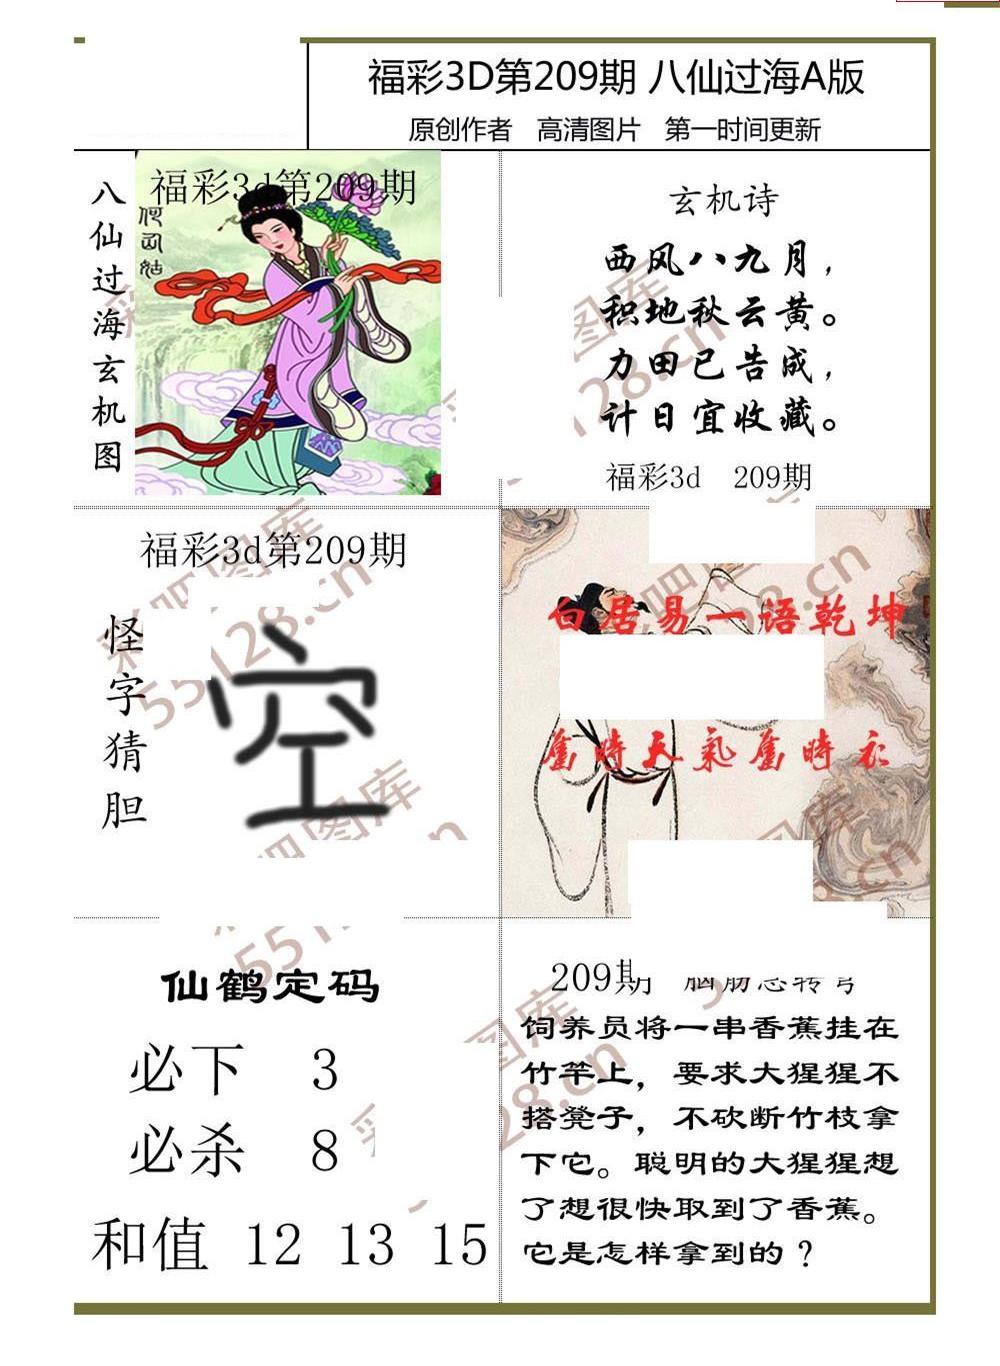 福彩3D第209期 八仙过海A版
原创作者 高清图片 第一时间更新
八仙过海玄机图
福彩3d第209期
何仙姑
玄机诗
西风八九月，
积地秋云黄。
力田已告成，
计日宜收藏。
福彩3d 209期
福彩3d第209期
怪字猜胆
空
白居易一语乾坤
旧時天氣旧時衣
仙鹤定码
必下 3
必杀 8
和值 12 13 15
209期 脑筋急转弯
饲养员将一串香蕉挂在
竹竿上，要求大猩猩不
搭凳子，不砍断竹枝拿
下它。聪明的大猩猩想
了想很快取到了香蕉。
它是怎样拿到的？
彩吧图库
55128.cn